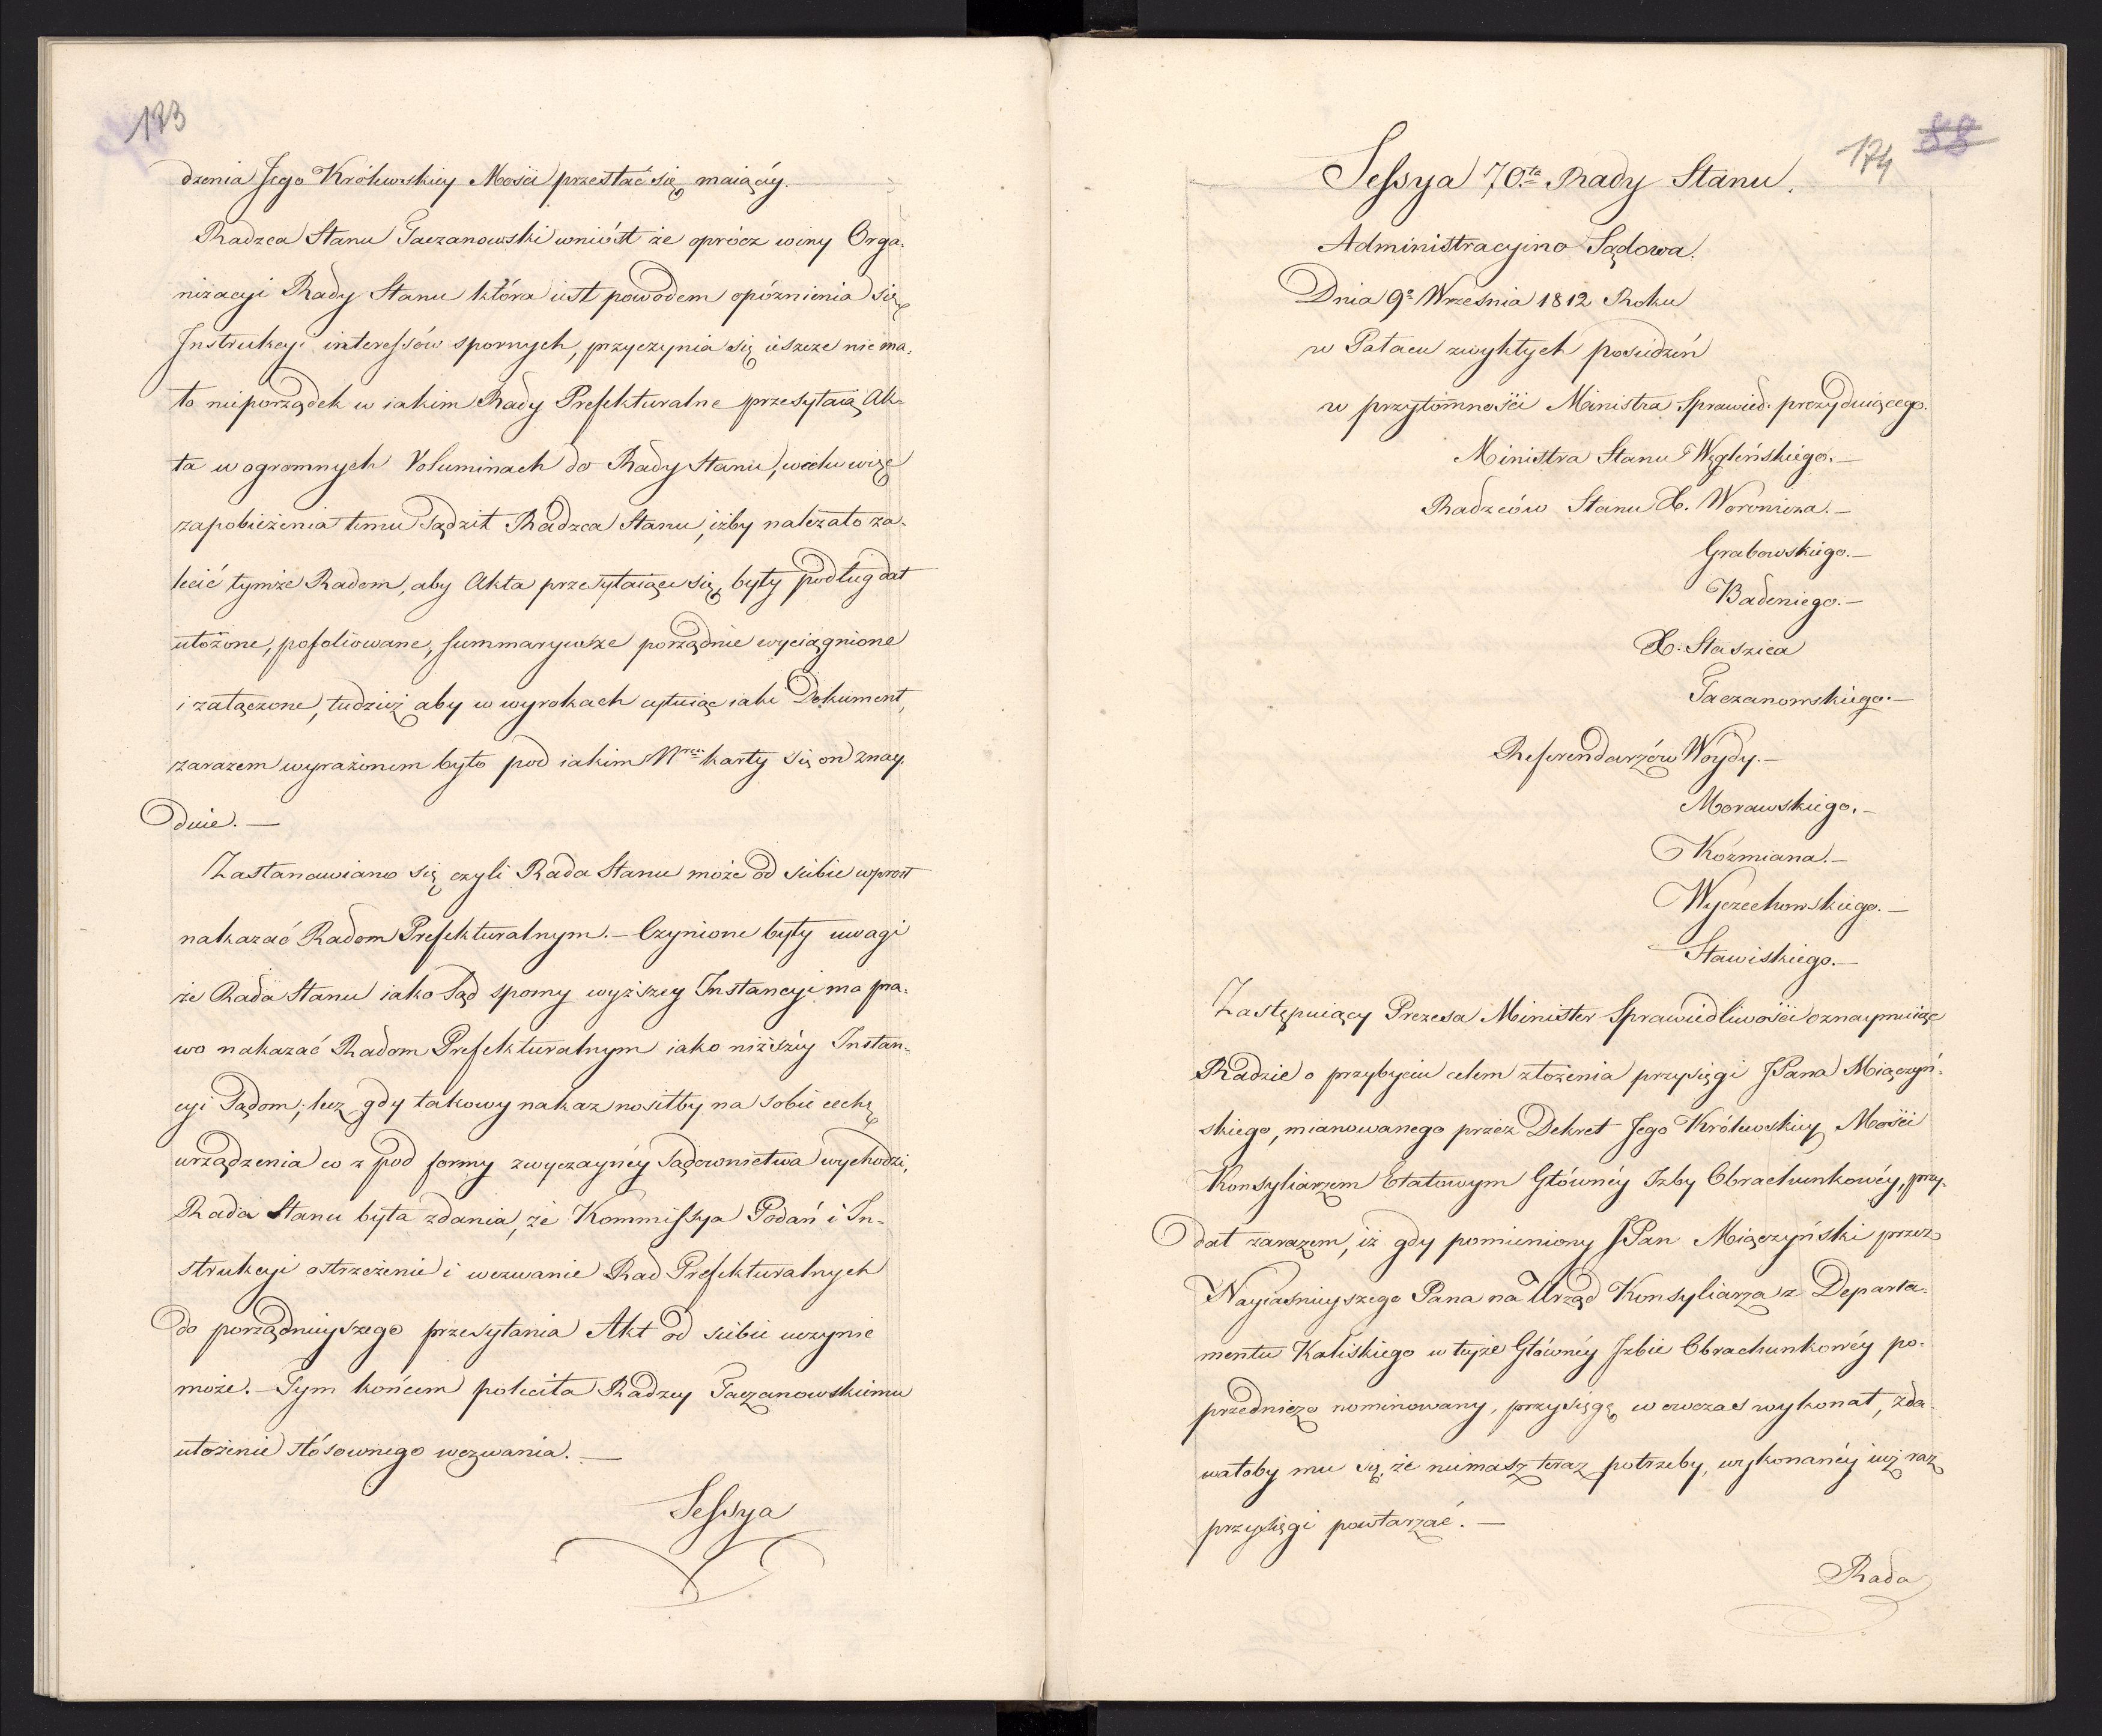 173
dzenia Jego Królewskiey Mości przestać się maiącéy.
Radzca Stanu Taczanowski wniósł że oprócz winy Orga-
nizacyi Rady Stanu która iest powodem opóznienia się
Instrukcyi interessów spornych, przyczynia się ieszcze nie ma-
ło nieporządek w iakim Rady Prefekturalne przesyłaią Ak-
ta w ogromnych Voluminach do Rady Stanu, w celu więc
zapobieżenia temu sądził Radzca Stanu, iżby należało za-
lecić tymże Radom, aby Akta przesyłaiące się, były podług dat
ułożone, pofoliowane, summaryusze porządnie wyciągnione
i załączone, tudzież aby w wyrokach cytuiąc iaki Dokument,
zarazem wyrażonem było pod iakim Nrem karty się on znay-
duie. —
Zastanawiano się czyli Rada Stanu może od siebie wprost
nakazać Radom Prefekturalnym. — Czynione były uwagi
że Rada Stanu iako Sąd sporny wyższey Instancyi ma pra-
wo nakazać Radom Prefekturalnym iako niższéy Instan-
cyi Sądom; lecz gdy takowy nakaz nosiłby na sobie cechę
urządzenia co z pod formy zwyczaynéy Sądownictwa wychodzi,
Rada Stanu była zdania, że Kommissya Podań i In-
strukcyi ostrzeżenie i wezwanie Rad Prefekturalnych
do porządnieyszego przesyłania Akt od siebie uczynić
może. — Tym końcem poleciła Radzcy Taczanowskiemu
ułożenie stósownego wezwania. —
Sessya
174 88
Sessya 70.ta Rady Stanu.
Administracyino Sądowa.
Dnia 9o Września 1812 Roku
w Pałacu zwykłych posiedzeń
w przytomności Ministra Sprawied. prezyduiącego.
Ministra Stanu Węgleńskiego. —
Radzców Stanu X. Woronicza. —
Grabowskiego. —
Badeniego. —
X. Staszica
Taczanowskiego. —
Referendarzów Woydy. —
Morawskiego. —
Koźmiana. —
Wyczechowskiego. —
Stawiskiego. —
Zastępuiący Prezesa Minister Sprawiedliwości oznaymuiąc
Radzie o przybyciu celem złożenia przysięgi JPana Miączyń-
skiego, mianowanego przez Dekret Jego Królewskiey Mości
Konsyliarzem Etatowym Głównéy Izby Obrachunkowéy, przy-
dał zarazem, iż gdy pomieniony JPan Miączyński przez
Nayiaśnieyszego Pana na Urząd Konsyliarza z Departa-
mentu Kaliskiego w teyże Głównéy Izbie Obrachunkowéy po-
przedniczo nominowany, przysięgę wowczas wykonał, zda-
wałoby mu się, że niemasz teraz potrzeby, wykonanéy iuż raz
przysięgi powtarzać. —
Rada